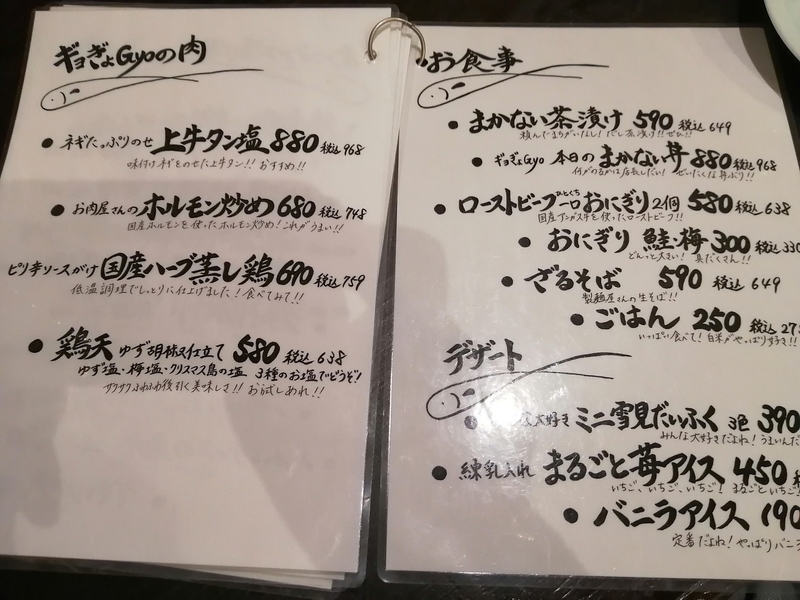 ギョぎょGyoの肉
● ネギたっぷりのせ 上牛タン塩 880 税込 968
味付けネギをのせた上牛タン!! おすすめ!!
● お肉屋さんのホルモン炒め 680 税込 748
国産ホルモンを使ったホルモン炒め!これがうまい!!
ピリ辛ソースがけ 国産ハーブ蒸し鶏 690 税込 759
低温調理でしっとりに仕上げました!食べてみて!!
● 鶏天 ゆず胡椒仕立て 580 税込 638
ゆず塩・梅塩・クリスマス島の塩 3種のお塩でどうぞ!
サクサクふわふわ後引く美味しさ!! お試しあれ!!
お食事
● まかない茶漬け 590 税込 649
頼んでまちがいなし!だし茶漬け!!ぜひ!!
● ギョぎょGyo 本日のまかない丼 880 税込 968
ぜいたくな丼ぶり!!
● ローストビーフ一口おにぎり 2個 580 税込 638
ひとくち
国産アンガス牛を使ったローストビーフ!!
● おにぎり 鮭・梅 300 税込 330
どんっと大きい! 具だくさん!!
● ざるそば 590 税込 649
製麺屋さんの生そば!!
● ごはん 250 税込 27
いっぱい食べて!白米がやっぱり好き!!
デザート
● 大好き ミニ雪見だいふく 3色 390
みんな大好きだよね!うまいんだ
● 練乳入れ まるごと苺アイス 450
いちご、いちご、いちご! まるごといちご
● バニラアイス 190
定番だよね!やっぱりバニ